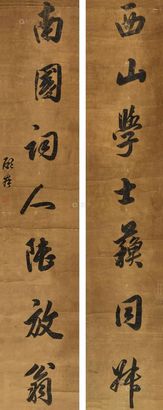 西山學士蘓同叔
南園詞人陸放翁